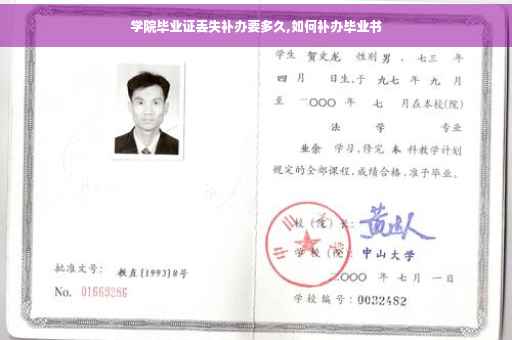 学院毕业证丢失补办要多久,如何补办毕业书
学生 贺文龙 性别 男 、七三 年
四 月 日生,于 九七 年 九 月
至 二〇〇〇 年 七 月在本校(院)
法 学 专业
业余 学习,修完 本 科教学计划
规定的全部课程,成绩合格,准予毕业。
校 (院) 长:
学 校 (院): 中山大学
二〇〇〇 年 七 月 一 日
学校编号: 0032482
批准文号: 教直[1993]8号
No. 01669286